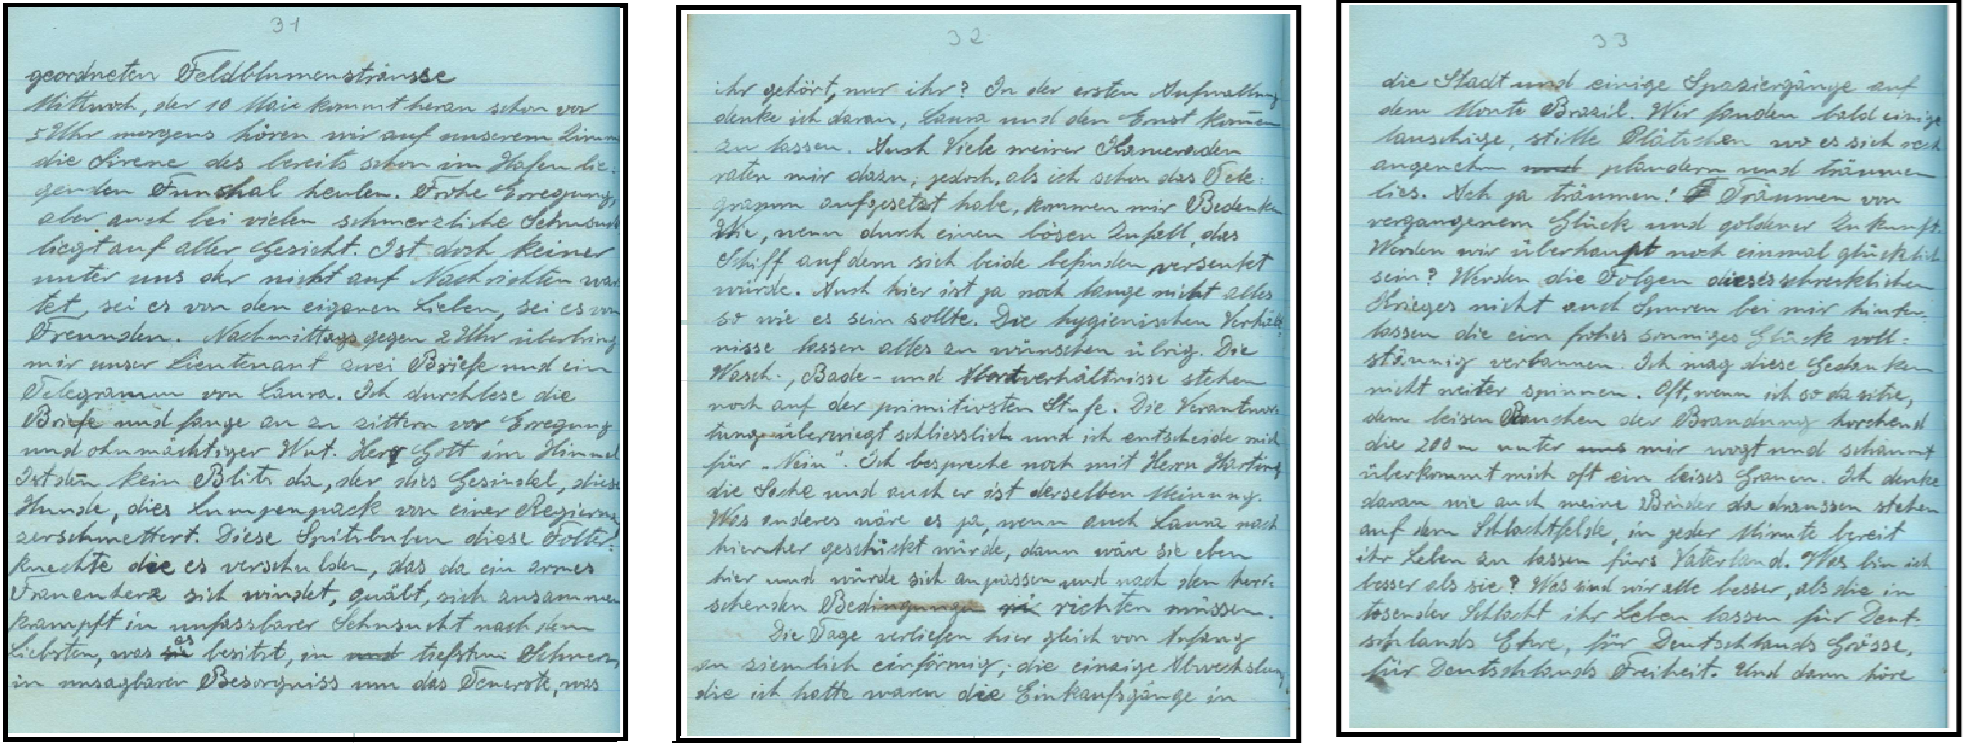 31
geordneten Feldblumensträusse
Mittwoch, der 10 Maie kommt heran schon vor
5 Uhr morgens hören wir auf unserem Zimm
die Sirene des bereits schon im Hafen lie-
genden Funchal heulen. Frohe Erregung,
aber auch bei vielen schmerzliche Sehnsuch
liegt auf aller Gesicht. Ist doch keiner
unter uns der nicht auf Nachrichten war
tet, sei es von den eigenen Lieben, sei es von
Freunden. Nachmittags gegen 2 Uhr überbring
mir unser Lieutenant zwei Briefe und ein
Telegramm von Laura. Ich durchlese die
Briefe und fange an zu zittern vor Erregung
und ohnmächtiger Wut. Herr Gott im Himmel
Ist den kein Blitz da, der dies Gesindel, diese
Hunde, dies Lumpenpack von einer Regierung
zerschmettert. Diese Spitzbuben diese Folter-
knechte die es verschulden, das da ein armes
Frauenherz sich windet, quält, sich zusammen
krampft in unfassbarer Sehnsucht nach dem
Liebsten, was es besitzt, in und tiefstem Schmerz,
in unsagbarer Besorgniss um das Teuerste, was
32
ihr gehört, nur ihr? In der ersten Aufwallung
denke ich daran, Laura und den Ernst kom̄en
zu lassen. Auch Viele meiner Kameraden
raten mir dazu, jedoch, als ich schon das Tele-
gramm aufgesetzt habe, kommen mir Bedenken
Wie, wenn durch einen bösen Zufall, das
Schiff auf dem sich beide befinden versenkt
würde. Auch hier ist ja noch lange nicht alles
so wie es sein sollte. Die hygienischen Verhält-
nisse lassen alles zu wünschen übrig. Die
Wasch-, Bade- und Abortverhältnisse stehen
noch auf der primitivsten Stufe. Die Verantwor-
tung überwiegt schliesslich und ich entscheide mich
für "Nein". Ich bespreche noch mit Herrn Harting
die Sache und auch er ist derselben Meinung.
Was anderes wäre es ja, wenn auch Laura nach
hierher geschickt würde, dann wäre sie eben
hier und würde sich anpassen und nach den herr-
schenden Bedingungen richten müssen.
Die Tage verliefen hier gleich von Anfang
an ziemlich einförmig; die einzige Abwechslung
die ich hatte waren die Einkaufsgänge in
33
die Stadt und einige Spaziergänge auf
dem Monte Brazil. Wir fanden bald einige
lauschige, stille Plätzchen wo es sich recht
angenehm und plaudern und träumen
lies. Ach ja träumen! Träumen von
vergangenem Glück und goldener Zukunft.
Werden wir überhaupt noch einmal glücklich
sein? Werden die Folgen dieses schrecklichen
Krieges nicht auch Spuren bei mir hinter-
lassen die ein frohes sonniges Glück voll-
stännig verbannen. Ich mag diese Gedanken
nicht weiter spinnen. Oft, wenn ich so da sitze,
dem leisen Rauschen der Brandung horchend
die 200 m unter uns mir wogt und schäumt
überkommt mich oft ein leises Grauen. Ich denke
daran wie auch meine Brüder da draussen stehen
auf dem Schlachtfelde, in jeder Minute bereit
ihr Leben zu lassen fürs Vaterland. Was bin ich
besser als sie? Was sind wir alle besser, als die in
tosender Schlacht ihr Leben lassen für Deut-
schlands Ehre, für Deutschlands Grösse,
für Deutschlands Freiheit. Und dann höre